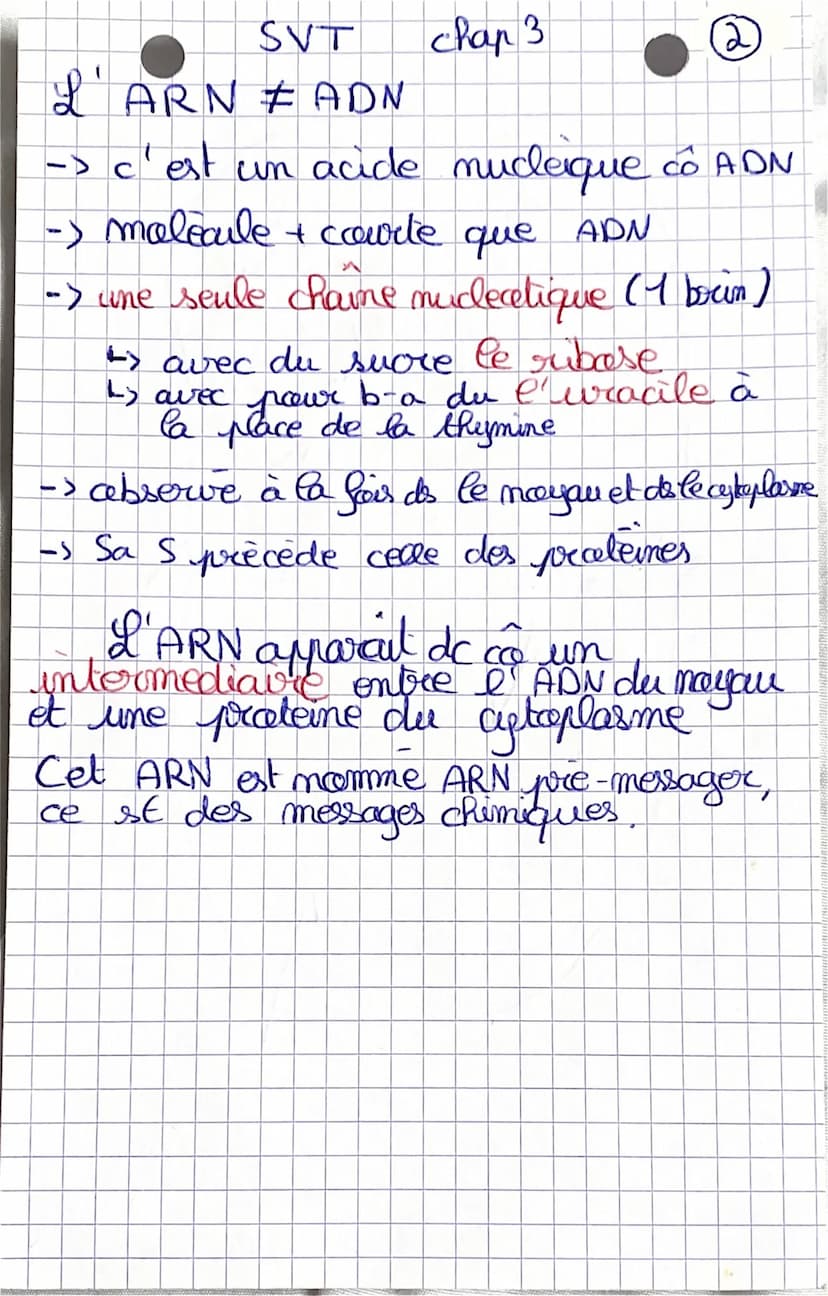 SVT chap 3 2
L'ARN ≠ ADN
-> c'est un acide nucléique cô ADN
-> molécule + courte que ADN
-> une seule chaîne nucleotique (1 brin)
↳ avec du sucre le ribose
↳ avec pour b-a du l'uracile à
la place de la thymine
-> observé à la fois ds le noyau et ds le cytoplasme
-> Sa S précède celle des protéines
L'ARN apparaît dc cô un
intermediaire entre l'ADN du noyau
et une proteine du cytoplasme
Cet ARN est nommé ARN pré-messager,
ce st des messages chimiques.